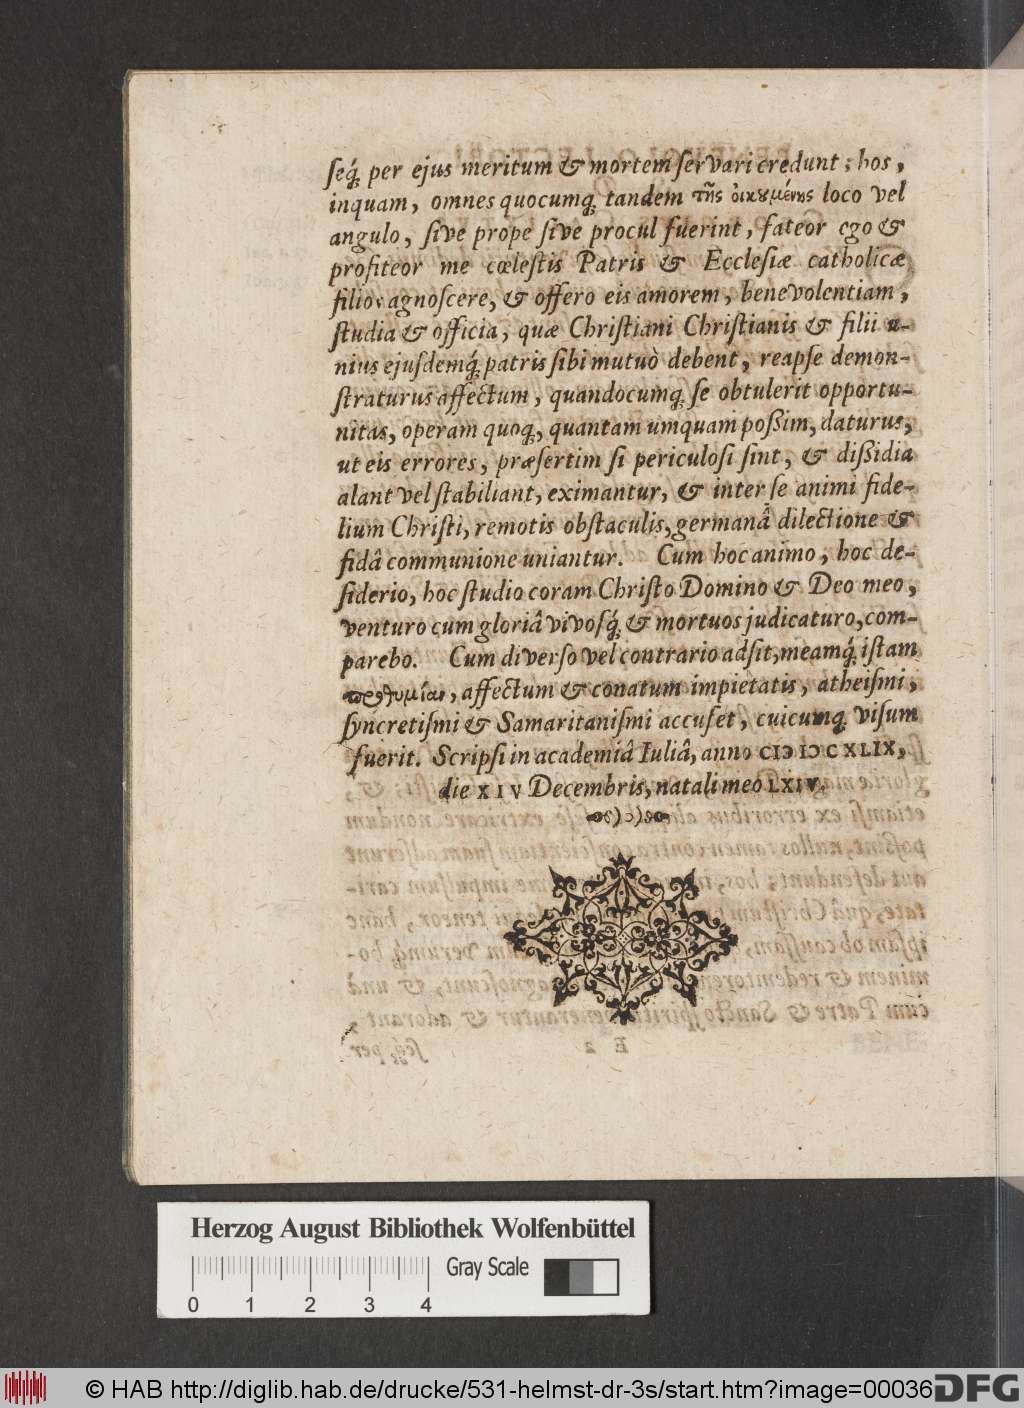 ſeq́; per ejus meritum & mortem ſervari credunt; hos,
inquam, omnes quocumq; tandem τῆς οἰκουμένης loco vel
angulo, ſive prope ſive procul fuerint, fateor ego &
profiteor me cœleſtis Patris & Eccleſiæ catholicæ
filios agnoſcere, & offero eis amorem, benevolentiam,
ſtudia & officia, quæ Chriſtiani Chriſtianis & filii u-
nius ejuſdemq́; patris ſibi mutuò debent, reapſe demon-
ſtraturus affectum, quandocumq; ſe obtulerit opportu-
nitas, operam quoq;, quantam umquam poßim, daturus,
ut eis errores, præſertim ſi periculoſi ſint, & dißidia
alant vel ſtabiliant, eximantur, & inter ſe animi fide-
lium Chriſti, remotis obſtaculis, germanâ dilectione &
fidâ communione uniantur. Cum hoc animo, hoc de-
ſiderio, hoc ſtudio coram Chriſto Domino & Deo meo,
venturo cum gloriâ vivoſq́; & mortuos judicaturo, com-
parebo. Cum diverſo vel contrario adſit, meamq́; iſtam
προθυμίαν, affectum & conatum impietatis, atheiſmi,
ſyncretiſmi & Samaritaniſmi accuſet, cuicumq; viſum
fuerit. Scripſi in academiâ Iuliâ, anno CIↃ IↃC XLIX,
die XIV Decembris, natali meo LXIV.
Herzog August Bibliothek Wolfenbüttel
Gray Scale
0 1 2 3 4
© HAB http://diglib.hab.de/drucke/531-helmst-dr-3s/start.htm?image=00036
DFG